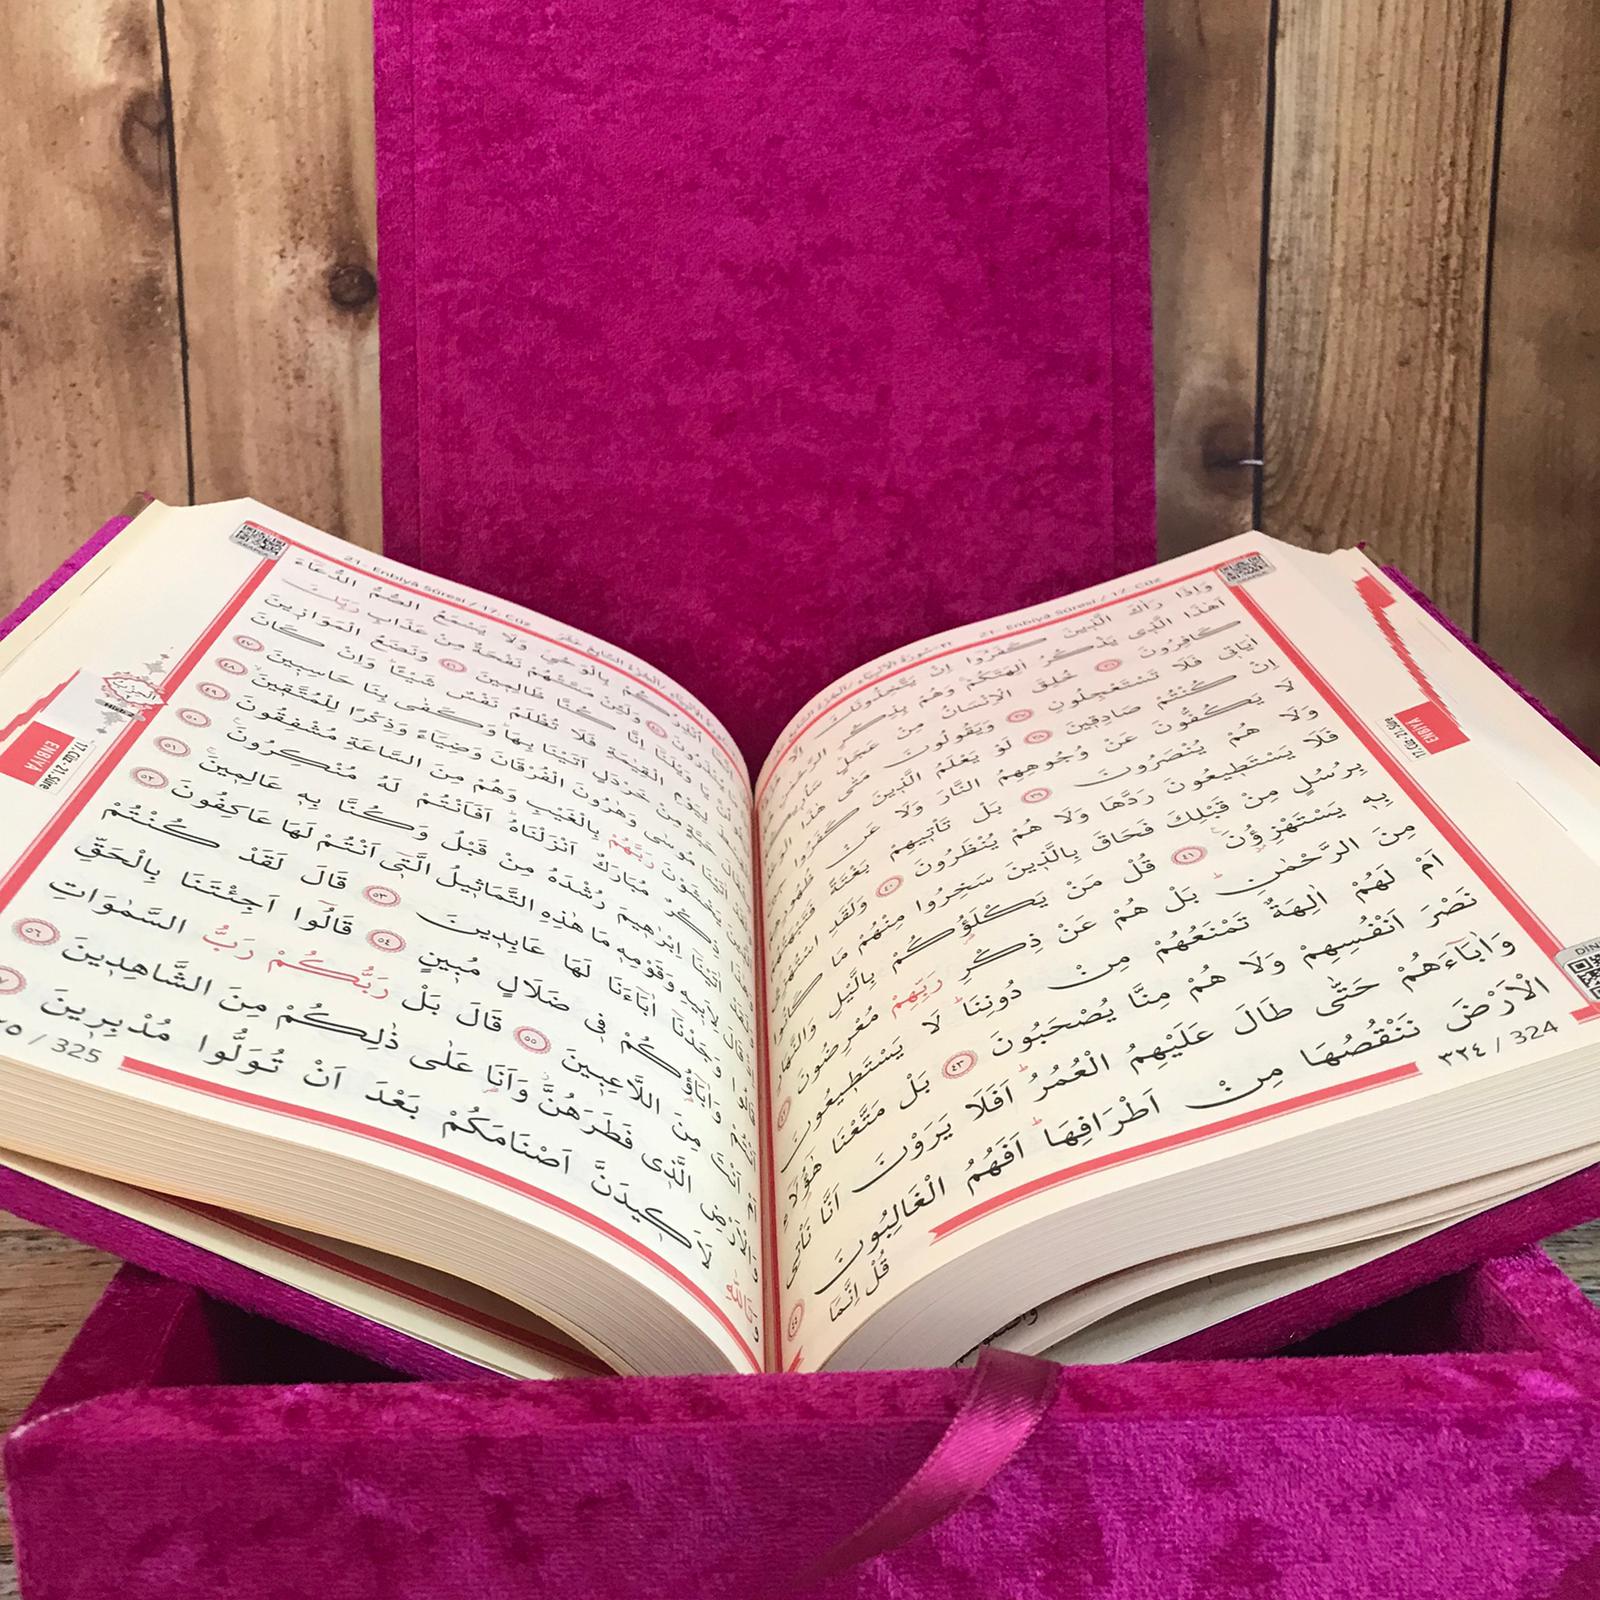 21- Enbiyâ Sûresi / 17. Cüz
وَاِذَا رَاٰكَ الَّذِينَ كَفَرُوا اِنْ يَتَّخِذُونَكَ
اَهٰذَا الَّذِى يَذْكُرُ اٰلِهَتَكُمْ وَهُمْ بِذِكْرِ
كَافِرُونَ ٣٦ خُلِقَ الْاِنْسَانُ مِنْ عَجَلٍ
اٰيَاتِى فَلَا تَسْتَعْجِلُونِ ٣٧ وَيَقُولُونَ مَتٰى هٰذَا
اِنْ كُنْتُمْ صَادِقِينَ ٣٨ لَوْ يَعْلَمُ الَّذِينَ كَفَرُوا
لَا يَكُفُّونَ عَنْ وُجُوهِهِمُ النَّارَ وَلَا عَنْ
وَلَا هُمْ يُنْصَرُونَ ٣٩ بَلْ تَأْتِيهِمْ بَغْتَةً
فَلَا يَسْتَطِيعُونَ رَدَّهَا وَلَا هُمْ يُنْظَرُونَ ٤٠ وَلَقَدِ
بِرُسُلٍ مِنْ قَبْلِكَ فَحَاقَ بِالَّذِينَ سَخِرُوا مِنْهُمْ مَا كَانُوا
بِهِ يَسْتَهْزِؤُنَ ٤١ قُلْ مَنْ يَكْلَؤُكُمْ بِالَّيْلِ وَالنَّهَارِ
مِنَ الرَّحْمٰنِ بَلْ هُمْ عَنْ ذِكْرِ رَبِّهِمْ مُعْرِضُونَ
اَمْ لَهُمْ اٰلِهَةٌ تَمْنَعُهُمْ مِنْ دُونِنَا لَا يَسْتَطِيعُونَ
نَصْرَ اَنْفُسِهِمْ وَلَا هُمْ مِنَّا يُصْحَبُونَ ٤٣ بَلْ مَتَّعْنَا هٰؤُلَاءِ
وَاٰبَاءَهُمْ حَتّٰى طَالَ عَلَيْهِمُ الْعُمُرُ اَفَلَا يَرَوْنَ اَنَّا نَأْتِى
الْاَرْضَ نَنْقُصُهَا مِنْ اَطْرَافِهَا اَفَهُمُ الْغَالِبُونَ ٤٤
قُلْ اِنَّمَا
٣٢٤ / 324
17.Cüz-21.Sûre
ENBİYA
21- Enbiyâ Sûresi / 17. Cüz
بِالْوَحْىِ وَلَا يَسْمَعُ الصُّمُّ الدُّعَاءَ
وَلَئِنْ مَسَّتْهُمْ نَفْحَةٌ مِنْ عَذَابِ رَبِّكَ
اِنَّا كُنَّا ظَالِمِينَ ٤٦ وَنَضَعُ الْمَوَازِينَ
الْقِيٰمَةِ فَلَا تُظْلَمُ نَفْسٌ شَيْئًا وَاِنْ كَانَ
خَرْدَلٍ اَتَيْنَا بِهَا وَكَفٰى بِنَا حَاسِبِينَ ٤٧
مُوسٰى وَهٰرُونَ الْفُرْقَانَ وَضِيَاءً وَذِكْرًا لِلْمُتَّقِينَ ٤٨
رَبَّهُمْ بِالْغَيْبِ وَهُمْ مِنَ السَّاعَةِ مُشْفِقُونَ ٤٩
مُبَارَكٌ اَنْزَلْنَاهُ اَفَاَنْتُمْ لَهُ مُنْكِرُونَ ٥٠
اِبْرٰهِيمَ رُشْدَهُ مِنْ قَبْلُ وَكُنَّا بِهِ عَالِمِينَ ٥١
وَقَوْمِهِ مَا هٰذِهِ التَّمَاثِيلُ الَّتِى اَنْتُمْ لَهَا عَاكِفُونَ ٥٢
اٰبَاءَنَا لَهَا عَابِدِينَ ٥٣ قَالَ لَقَدْ كُنْتُمْ
وَاٰبَاؤُكُمْ فِى ضَلَالٍ مُبِينٍ ٥٤ قَالُوا اَجِئْتَنَا بِالْحَقِّ
مِنَ اللَّاعِبِينَ ٥٥ قَالَ بَلْ رَبُّكُمْ رَبُّ السَّمٰوَاتِ
الَّذِى فَطَرَهُنَّ وَاَنَا عَلٰى ذٰلِكُمْ مِنَ الشَّاهِدِينَ ٥٦
لَاَكِيدَنَّ اَصْنَامَكُمْ بَعْدَ اَنْ تُوَلُّوا مُدْبِرِينَ
/ 325
17.Cüz-21.Sûre
ENBİYA